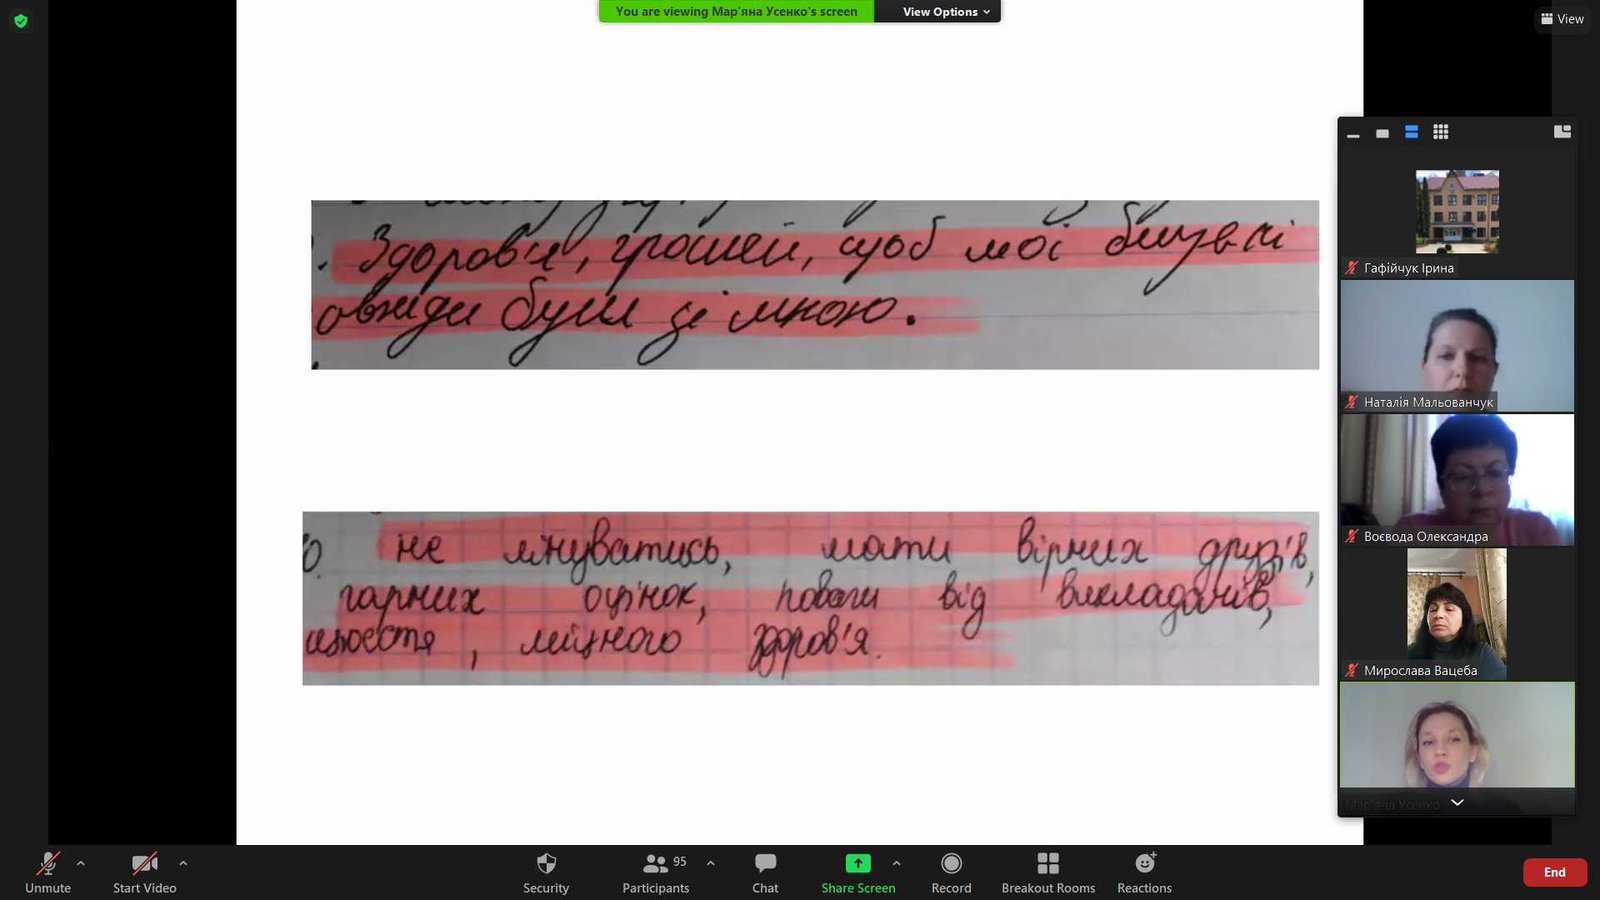 You are viewing Мар'яна Усенко's screen
View Options
View
Здоров'я, грошей, щоб мої близькі
завжди були зі мною.
10. не лінуватись, мати вірних друзів,
гарних оцінок, поваги від викладачів,
щастя, міцного здоров'я.
Гафійчук Ірина
Наталія Мальованчук
Воєвода Олександра
Мирослава Вацеба
Мар'яна Усенко
Unmute
Start Video
Security
Participants
95
Chat
Share Screen
Record
Breakout Rooms
Reactions
End